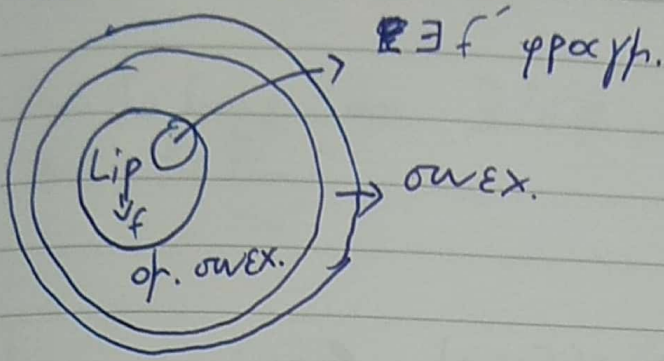 ∃ f' φραγμ.
Lip
f
συνεχ.
ομ. συνεχ.